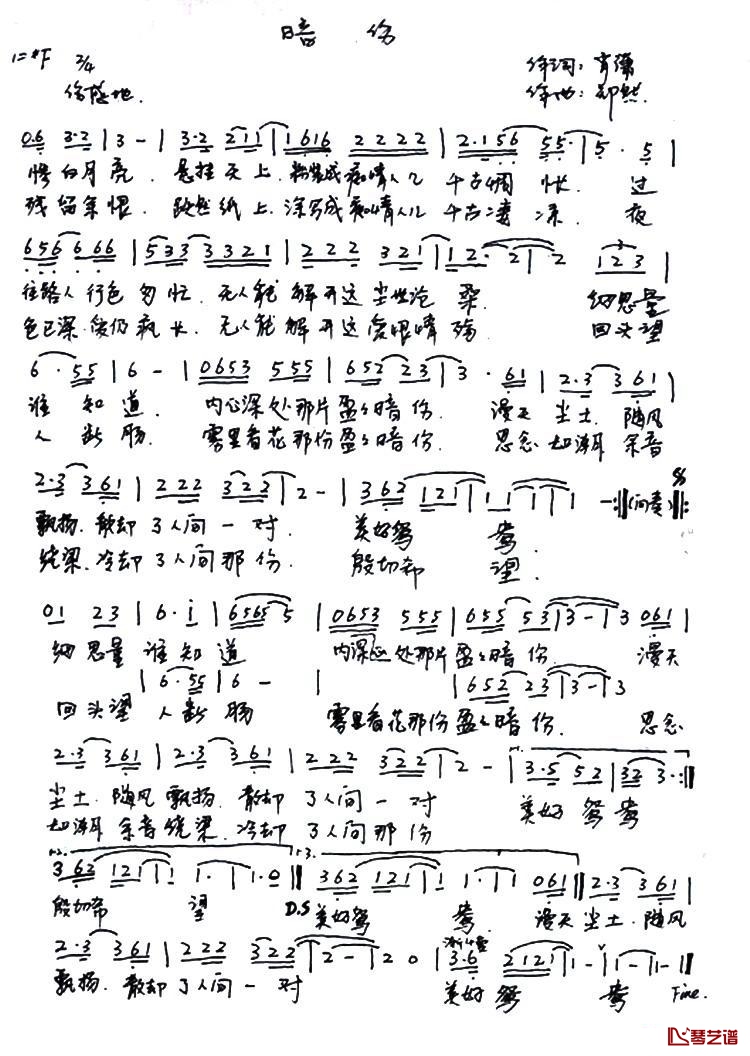 暗 伤
1=#F 2/4
作词：肖
伤感地.
作曲：郑然
0.6 3·2 | 3 - | 3·2 211 | 1616 2222 | 2·156 55· | 5 · 5 |
惨白月亮. 悬挂天上. 粉装成痴情人儿 千古惆怅. 过
残留余恨. 跃然纸上. 涂写成痴情人儿 千古凄凉. 夜
656 666 | 533 3321 | 222 321 | 12· 2 | 2 123 |
往路人行色匆忙. 无人能解开这尘世沧桑. 细思量
色已深 仍疯长. 无人能解开这 眼情殇. 回头望
6 · 55 | 6 - | 0653 555 | 652 23 | 3 · 61 | 2·3 361 |
谁知道. 内心深处那片盈盈暗伤. 漫天尘土. 随风
人断肠. 雾里看花那份盈盈暗伤. 思念如潮 余音
2·3 361 | 222 323 | 2 - | 362 121 | 1 1 1 | 1 - :‖(间奏)‖:
飘扬. 散却了人间一对. 美好鸳鸯.
绕梁. 冷却了人间那份. 殷切希望.
01 23 | 6·i | 6565 5 | 0653 555 | 655 53 | 3 - | 3 061 |
细思量 谁知道 内心深处那片盈盈暗伤. 漫天
| 6·55 | 6 - | 652 23 | 3 - | 3
回头望 人断肠 雾里看花那份盈盈暗伤. 思念
2·3 361 | 2·3 361 | 222 322 | 2 - | 3·5 52 | 32 3· :‖
尘土. 随风飘扬. 散却了人间一对 美好鸳鸯
如潮 余音绕梁. 冷却了人间那份
1.2.
362 121 | 1 1· | 1·0 ‖ 1.3. 362 121 | 1 1· | 1 061 ‖ 2·3 361 |
殷切希望 D.S 美好鸳鸯. 漫天尘土. 随风
渐慢
2·3 361 | 222 322 | 2 - | 2 0 | 3·6 2121 | 1 - | 1 - | 1 - ‖
飘扬. 散却了人间一对 美好鸳鸯 Fine.
琴艺谱